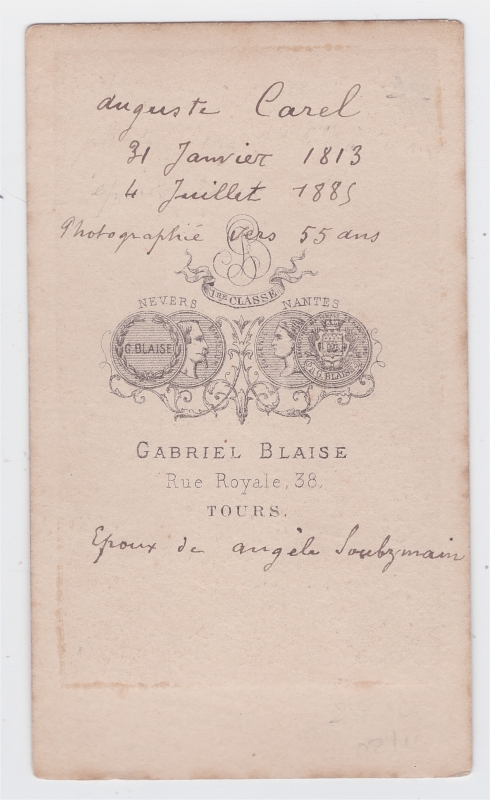 Auguste Carel
31 Janvier 1813
4 Juillet 1885
Photographié vers 55 ans
GB
1RE CLASSE
NEVERS NANTES
G. BLAISE
GABRIEL BLAISE
Rue Royale, 38.
TOURS.
Epoux de Angèle Soubzmain